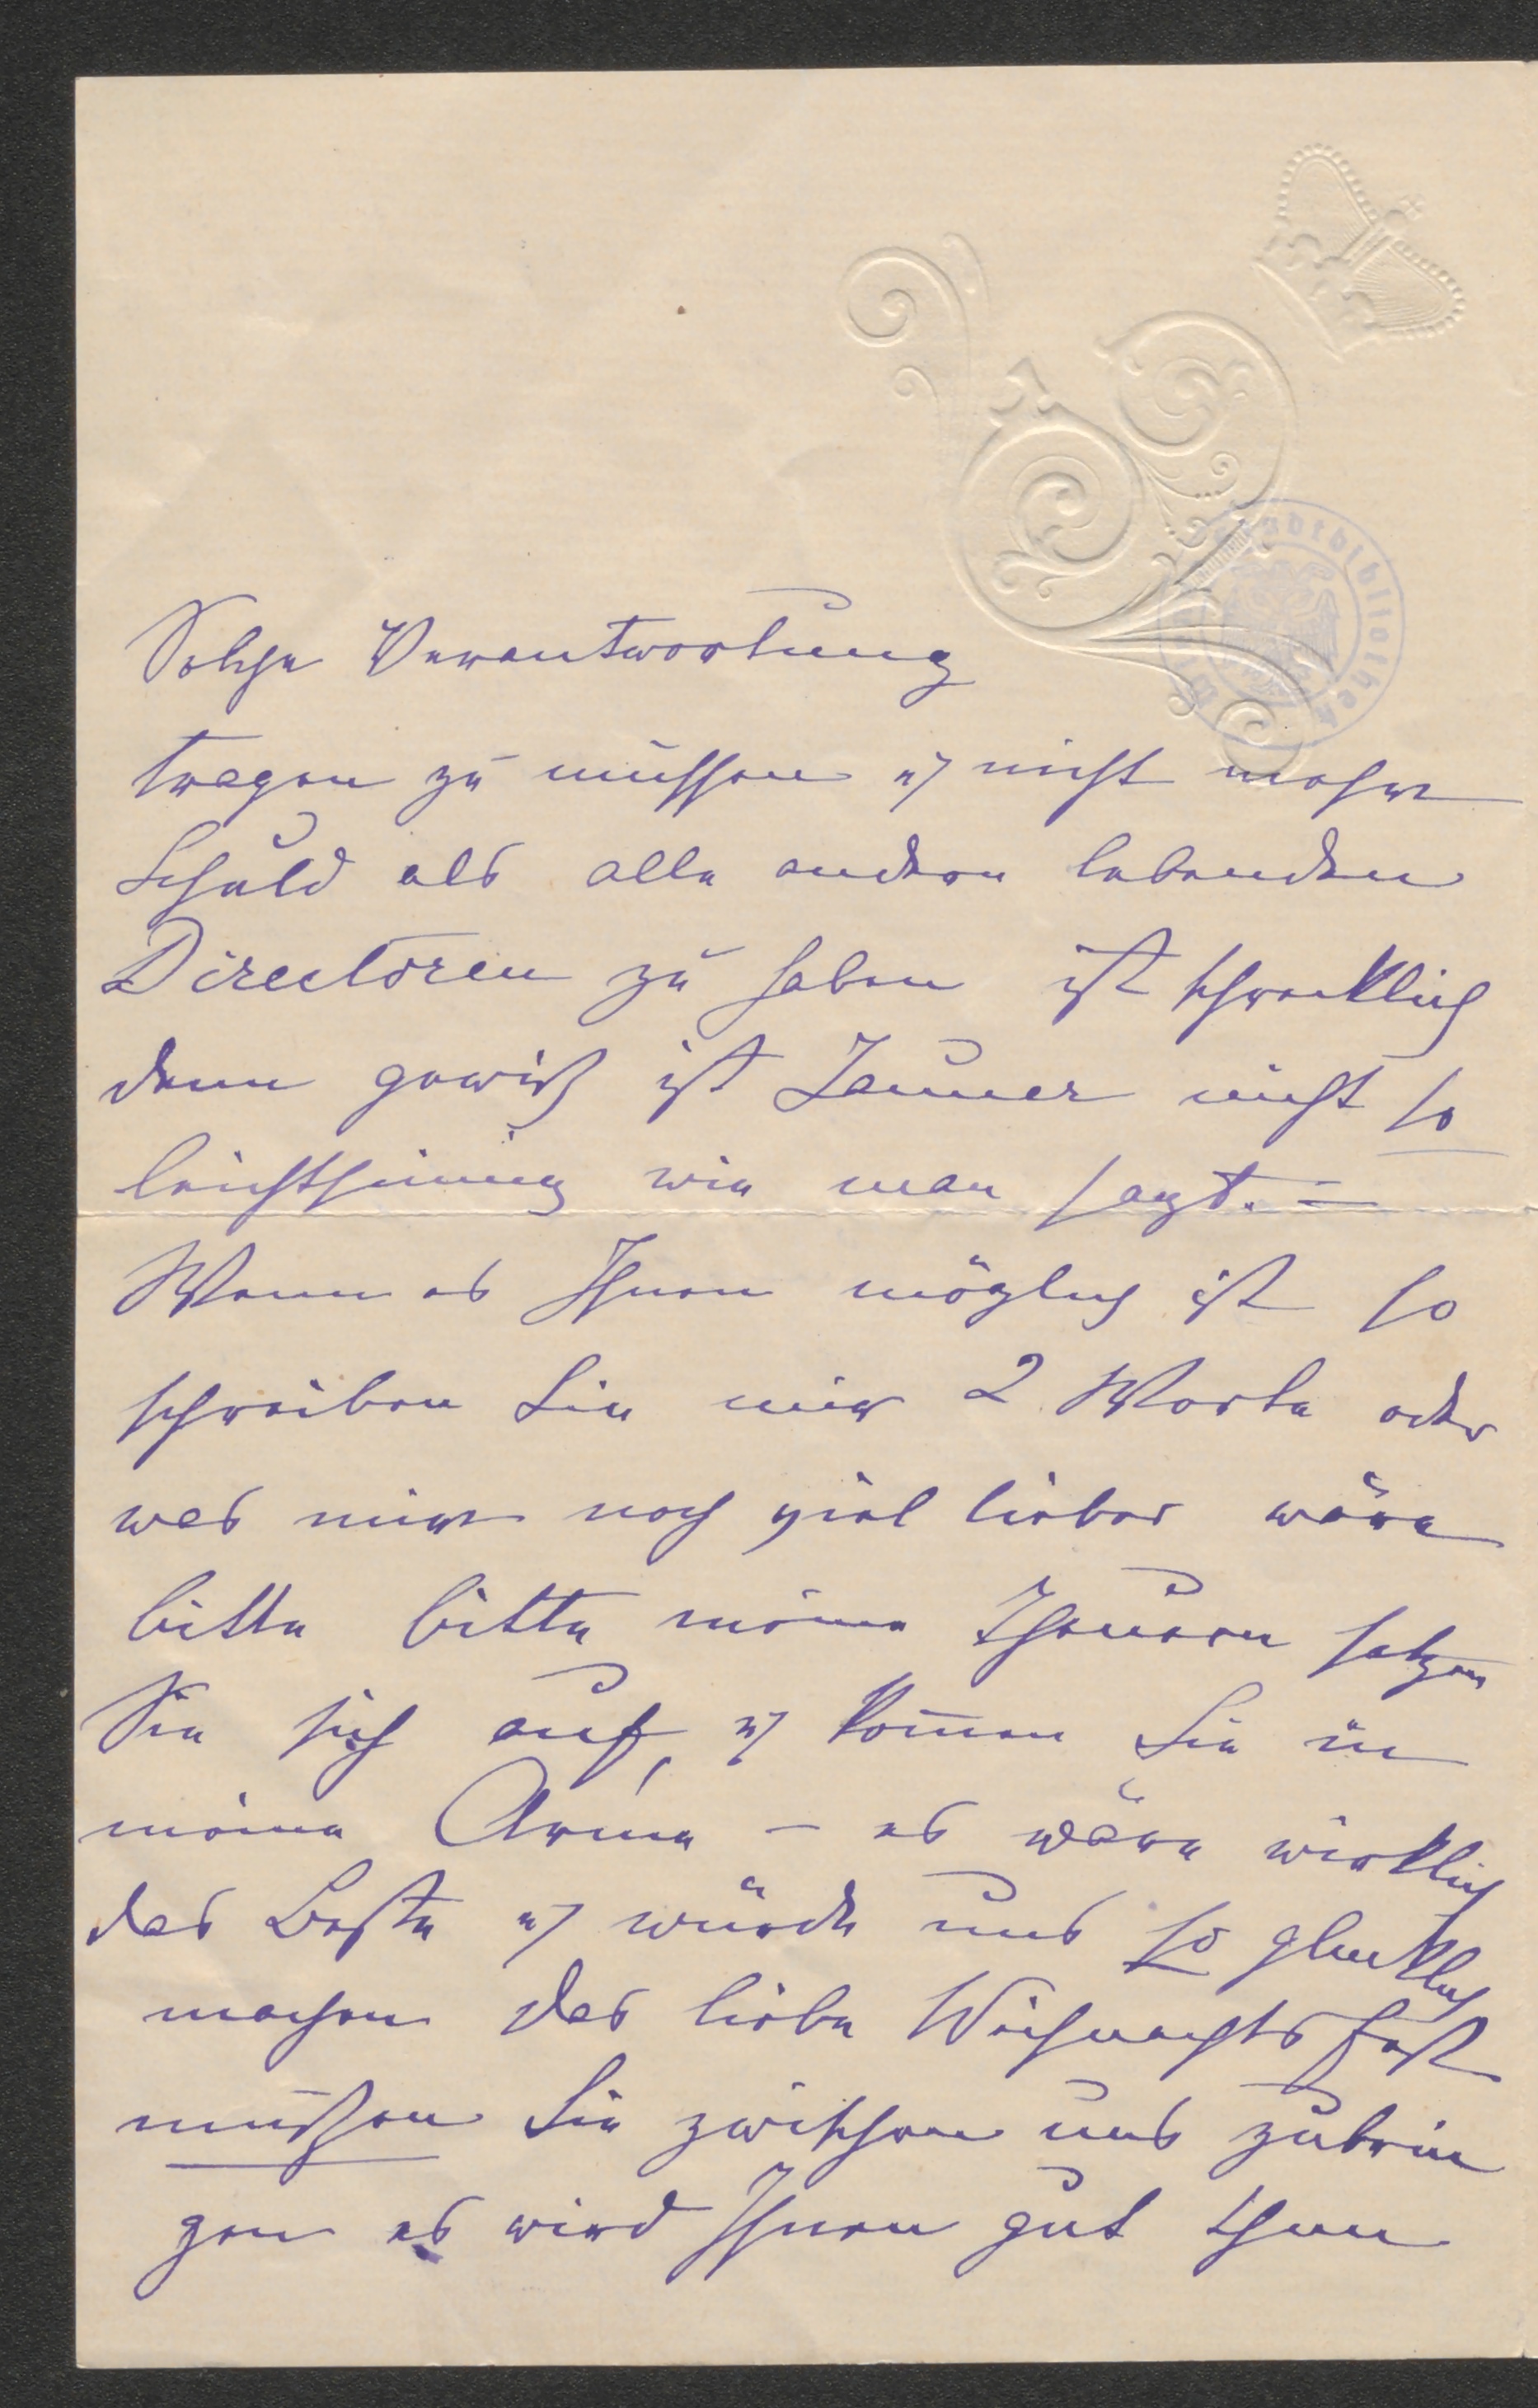 Solche Verantwortung
tragen zu müssen u nicht mehr
Schuld als alle andern lebenden
Directoren zu haben ist schrecklich
denn gewiß ist Jauner nicht so
leichtsinnig wie man sagt. =
Wenn es Ihnen möglich ist so
schreiben Sie mir 2 Worte oder
was mir noch viel lieber wäre
bitte bitte meine Theuern setzen
Sie sich auf, u kom̄en Sie in
meine Arme – es wäre wirklich
das Beste u würde uns so glücklich
machen das liebe Weihnachtsfest
müßen Sie zwischen uns zubrin
gen es wird Ihnen gut thun